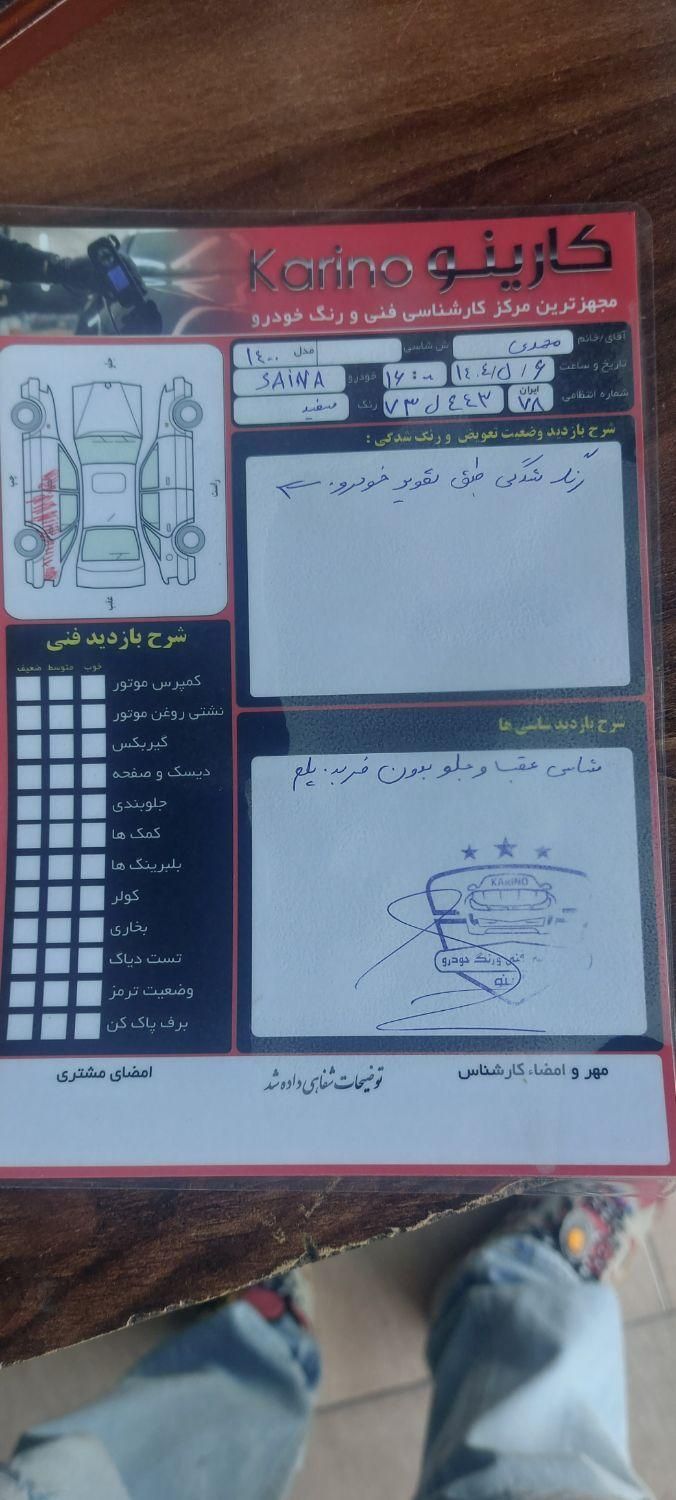 کارینو Karino
مجهزترین مرکز کارشناسی فنی و رنگ خودرو
آقای/خانم مهدی ش شاسی مدل ۱۴۰۰
تاریخ و ساعت ۱۴۰۴/ ۱۶:۰۰ خودرو SAINA
شماره انتظامی ایران ۷۸ ۴۴۳ ل ۷۳ رنگ سفید
جلو
چپ
راست
عقب
شرح بازدید وضعیت تعویض و رنگ شدگی :
رنگ شدگی طبق تصویر خودرو
شرح بازدید فنی
خوب متوسط ضعیف
کمپرس موتور
نشتی روغن موتور
گیربکس
دیسک و صفحه
جلوبندی
کمک ها
بلبرینگ ها
کولر
بخاری
تست دیاگ
وضعیت ترمز
برف پاک کن
شرح بازدید شاسی ها
شاسی عقب و جلو بدون ضربه پلمپ
KARINO
فنی و رنگ خودرو
مهر و امضاء کارشناس
توضیحات شفاهی داده شد
امضای مشتری